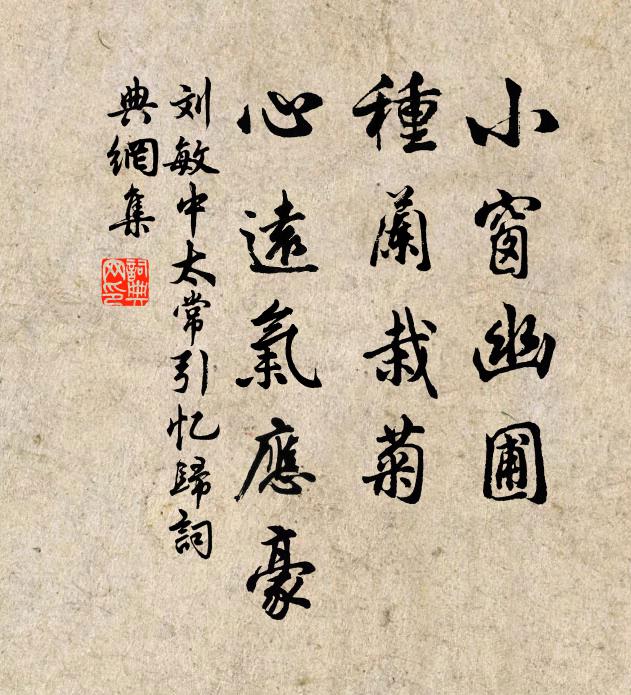 小窗幽圃
種蘭栽菊
心遠氣應豪
刘敏中太常引忆歸詞
典網集
詞典網印